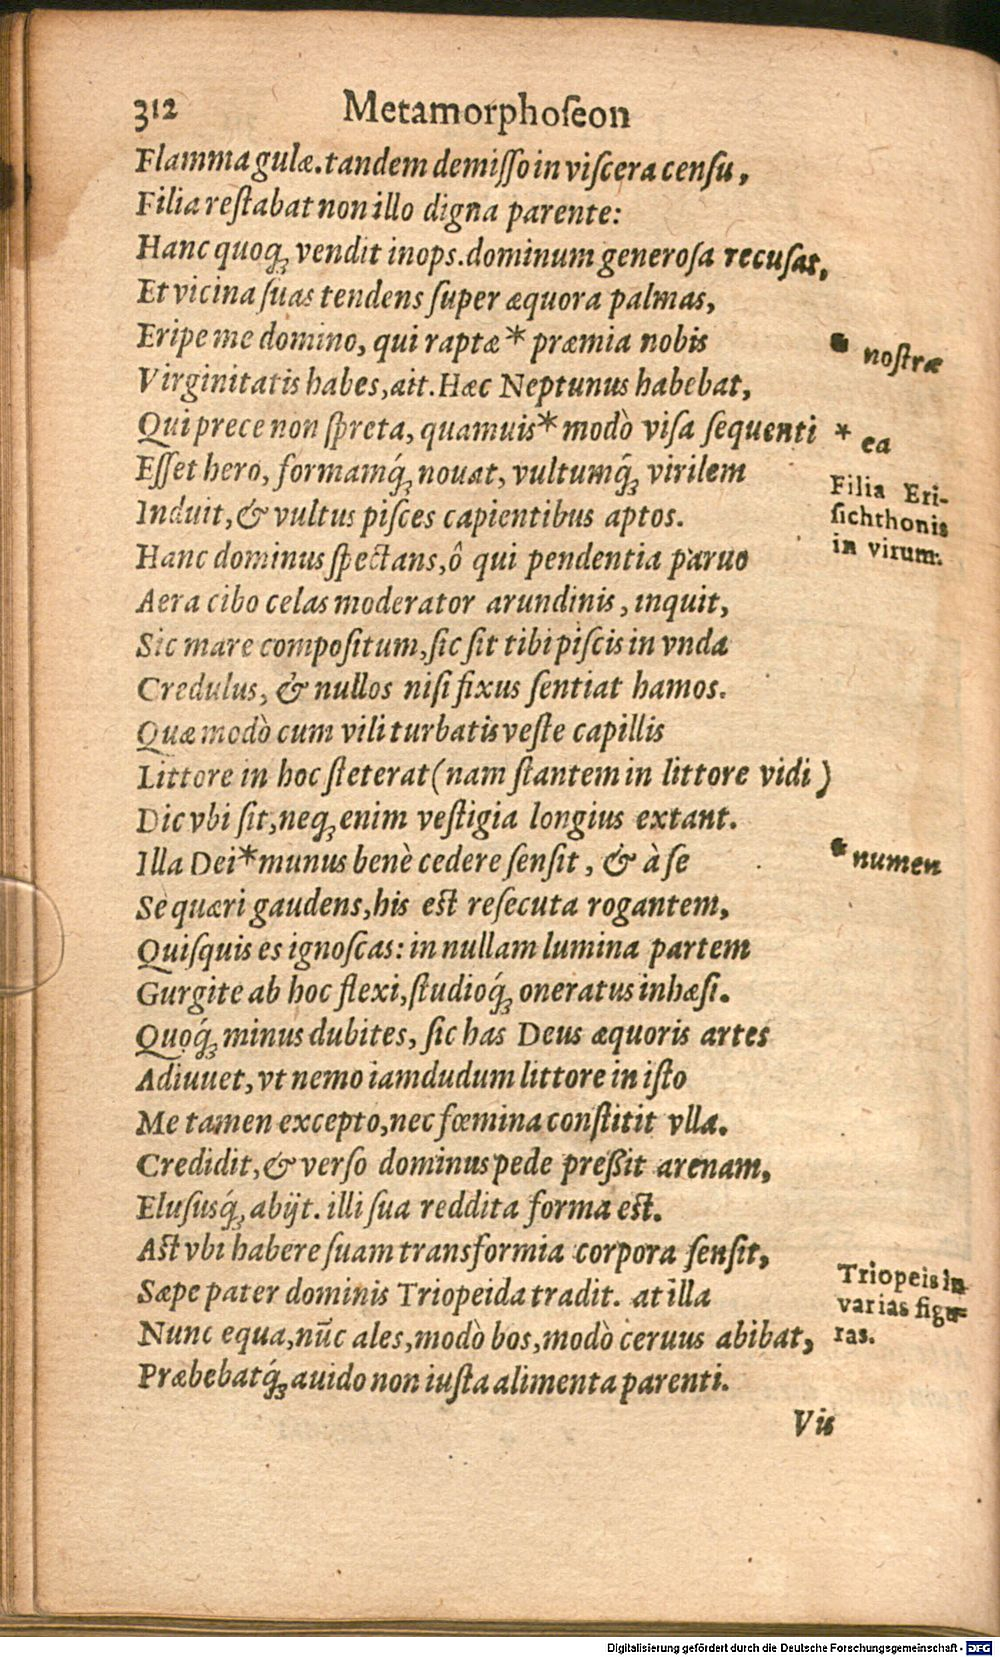 312 Metamorphoſeon
Flamma gulæ. tandem demiſſo in viſcera cenſu,
Filia reſtabat non illo digna parente:
Hanc quoq; vendit inops. dominum generoſa recuſat,
Et vicina ſuas tendens ſuper æquora palmas,
Eripe me domino, qui raptæ * præmia nobis
* noſtræ
Virginitatis habes, ait. Hæc Neptunus habebat,
Qui prece non ſpreta, quamuis * modò viſa ſequenti
* ea
Eſſet hero, formamq́; nouat, vultumq́; virilem
Induit, & vultus piſces capientibus aptos.
Filia Eri-
ſichthonis
in virum.
Hanc dominus ſpectans, ô qui pendentia paruo
Aera cibo celas moderator arundinis, inquit,
Sic mare compoſitum, ſic ſit tibi piſcis in vnda
Credulus, & nullos niſi fixus ſentiat hamos.
Quæ modò cum vili turbatis veſte capillis
Littore in hoc ſteterat (nam ſtantem in littore vidi)
Dic vbi ſit, neq; enim veſtigia longius extant.
Illa Dei * munus benè cedere ſenſit, & à ſe
* numen
Se quæri gaudens, his eſt reſecuta rogantem,
Quiſquis es ignoſcas: in nullam lumina partem
Gurgite ab hoc flexi, ſtudioq́; oneratus inhæſi.
Quoq́; minus dubites, ſic has Deus æquoris artes
Adiuuet, vt nemo iamdudum littore in iſto
Me tamen excepto, nec fœmina conſtitit vlla.
Credidit, & verſo dominus pede preßit arenam,
Eluſusq́; abijt. illi ſua reddita forma eſt.
Aſt vbi habere ſuam transformia corpora ſenſit,
Sæpe pater dominis Triopeida tradit. at illa
Nunc equa, nūc ales, modò bos, modò ceruus abibat,
Præbebatq́; auido non iuſta alimenta parenti.
Triopeis in
varias figu-
ras.
Vis
Digitalisierung gefördert durch die Deutsche Forschungsgemeinschaft - DFG